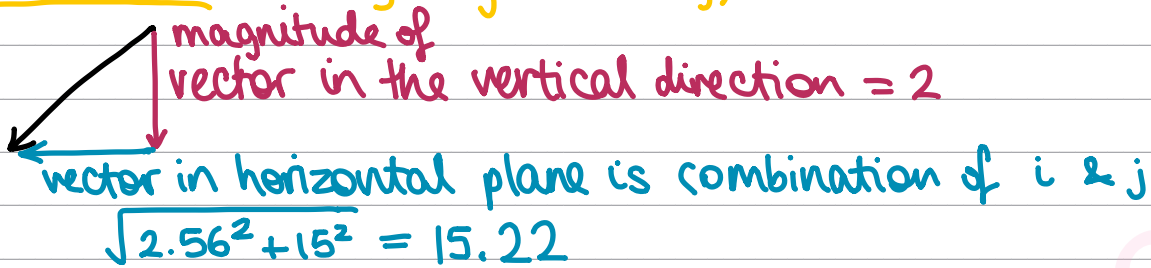 magnitude of
vector in the vertical direction = 2
vector in horizontal plane is combination of i & j
√2.56² + 15² = 15.22